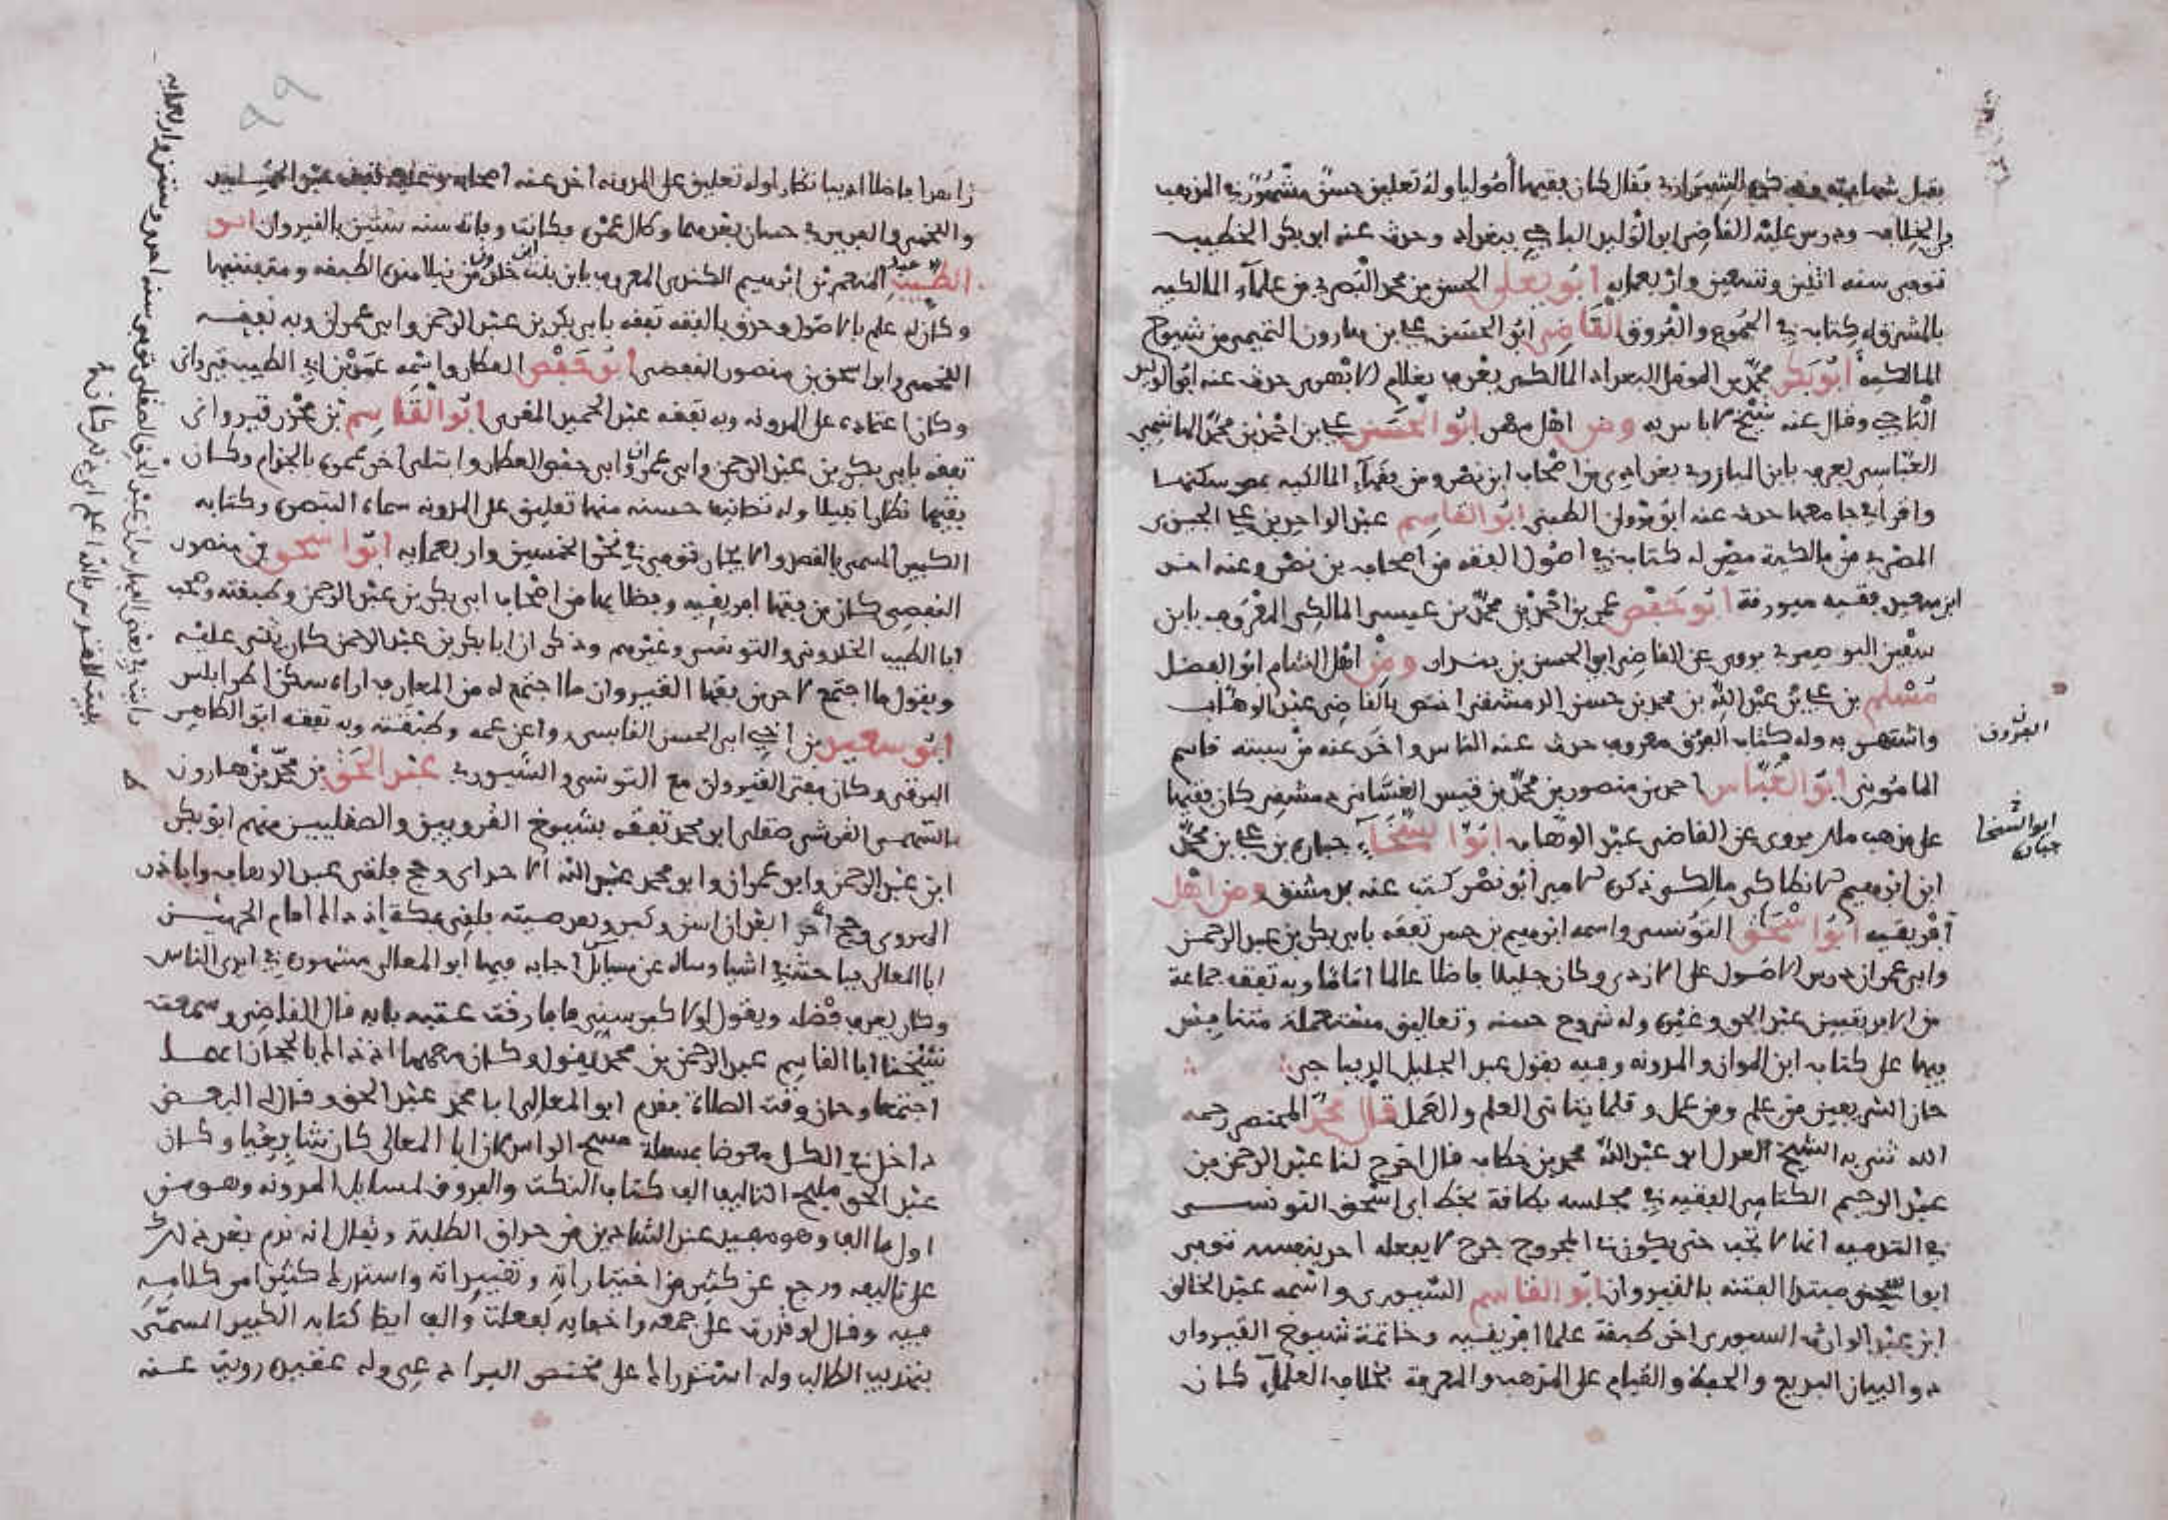 يقبل شهادته وذكره الشيرازي فقال كان فقيها أصوليا وله تعليق حسن مشهور في المذهب
والخلاف ودرس عليه القاضي ابو الوليد الباجي ببغداد وحدث عنه ابو بكر الخطيب
توفي سنه اثنين وخمسين واربعمايه ابو يعلى الحسن بن محمد البصري من علماء المالكيه
بالمشرق له كتاب في الجموع والفروق القاضي ابو الحسن علي بن هارون التميمي من شيوخ
المالكية ابو بكر محمد بن المومل البغدادي المالكي يعرف بغلام الابهري حدث عنه ابو الوليد
الباجي وقال عنه شيخ لا باس به ومن اهل مصر ابو الحسن علي بن احمد بن محمد الهاشمي
العباسي يعرف بابن المبازري بغدادي من اصحاب ابن نصر ومن فقهاء المالكيه بمصر سكنها
واقرا في جامعها حدث عنه ابو مروان الطبني ابو القاسم عبد الواحد بن علي الجيزي
المصري من مالكية مصر له كتاب في اصول الفقه من اصحاب بن نصر وعنه اخذ
ابن سعيد فقيه ميورقة ابو حفص عمر بن احمد بن محمد بن عيسى المالكي المعروف بابن
سفين البوصيري يروي عن القاضي ابو الحسن بن بندار ومن اهل الشام ابو الفضل
مسلم بن علي بن عبد الله بن محمد بن حسن الدمشقي اختص بالقاضي عبد الوهاب
واشتهر به وله كتاب الفرق معروف حدث عنه الناس واخذ عنه من سبته قاسم
الماموني ابو العباس احمد بن منصور بن محمد بن قبيس الغساني دمشقي كان فقيها
على مذهب ملك يروي عن القاضي عبد الوهاب ابو السخاء جبارة بن علي بن محمد
ابن ابرهيم الانطاكي مالكي ذكره الامير ابو نصر كتب عنه بدمشق ومن اهل
افريقيه ابو اسحق التونسي واسمه ابرهيم بن حسن تفقه بابي بكر بن عبد الرحمن
وابي عمران درس الاصول على الازدي وكان جليلا فاضلا عالما اماما وبه تفقه جماعة
من الافريقيين عبد الحق وغيره وله شروح حسنه وتعاليق مستعملة متنافس
فيها على كتاب ابن المواز والمدونه وفيه يقول عبد الجليل الديباجي
حاز الشريفين من علم ومن عمل وقلما يتاتى العلم والعمل قال محمد المختصر رحمه
الله ثني به الشيخ العدل ابو عبد الله محمد بن خطاب قال اخرج لنا عبد الرحمن بن
عبد الرحيم الكتامي الفقيه في مجلسه بطاقة بخط ابي اسحق التونسي
في التدميه انها لا تجب حتى يكون في المجروح جرح لا يفعله احد بنفسه توفي
ابو اسحق مبتدا الفتنه بالقيروان ابو القاسم السيوري واسمه عبد الخالق
ابن عبد الوارث السيوري اخر طبقة علما افريقيه وخاتمة شيوخ القيروان
ذو البيان البديع والحفظ والقيام على المذهب والمعرفة بخلاف العلماء كان
الفروق
ابو السخا
جبارة
زاهدا فاضلا اديبا نظارا وله تعليق على المدونه اخذ عنه اصحابه وعليه تفقه عبد الحميد
واللخمي والعبدري حسان بعدهما وطال عمره وكانت وفاته سنه ستين بالقيروان ابو
الطيب عبد المنعم بن ابرهيم الكندي المعروف بابن بنت خلدون من نبلا هذه الطبقه ومتفننيها
وكان له علم بالاصول وحذق بالفقه تفقه بابي بكر بن عبد الرحمن وابي عمران وبه تفقه
اللخمي وابو اسحق بن منصور القفصي ابو حفص العطار واسمه عمر بن ابي الطيب قيرواني
وكان اعتماده على المدونه وبه تفقه عبد الحميد المقري ابو القاسم بن محرز قيرواني
تفقه بابي بكر بن عبد الرحمن وابي عمران وابي حفص العطار وابتلي اخر عمره بالجذام وكان
فقيها نظارا نبيلا وله تصانيف حسنه منها تعليق على المدونه سماه التبصره وكتابه
الكبير المسمى بالقصد والايجاز توفي في نحو الخمسين واربعمايه ابو اسحق بن منصور
القفصي كان من فقها افريقيه وفضلايها من اصحاب ابي بكر بن عبد الرحمن وطبقته وصحب
ابا الطيب الخلدوني والتونسي وغيرهم وذكر ان ابا بكر بن عبد الرحمن كان يثني عليه
ويقول ما اجتمع لاحد من فقها القيروان ما اجتمع له من المعارف اراه سكن اطرابلس
ابو سعيد بن اخي ابي الحسن القابسي روا عن عمه وطبقته وبه تفقه ابو الطاهر
البرقي وكان مفتي القيروان مع التونسي والسيوري عبد الحق بن محمد بن هارون
السهمي القرشي صقلي ابو محمد تفقه بشيوخ القرويين والصقليين منهم ابو بكر
ابن عبد الرحمن وابو عمران وابو محمد عبد الله الاجدابي وحج فلقي عبد الوهاب وابا ذر
الهروي وحج اخر ابعد ان اسن وكبر وبعد صيته فلقي بمكة اذ ذاك امام الحرمين
ابا المعالي فباحثه في اشيا وساله عن مسايل اجابه فيها ابو المعالي مشهوره في ايدي الناس
وكان يعرف فضله ويقول لولا كبر سني ما فارقت عتبه بابه قال القاضي وسمعت
شيخنا ابا القاسم عبد الرحمن بن محمد يقول وكان معهما اذ ذاك بالحجاز انهما
اجتمعا وحان وقت الصلاة فقدم ابو المعالي ابا محمد عبد الحق وقال له البعض
داخل في الكل معرضا بمسالة مسح الراس كان ابا المعالي كان شافعيا وكان
عبد الحق مليح التاليف الف كتاب النكت والفروق لمسايل المدونه وهو من
اول ما الف وهو مفيد عند الشاديين من حذاق الطلبة ويقال انه ندم بعد ذلك
على تاليفه ورجع عن كثير من اختياراته وتقييداته واستدرك كثيرا من كلامه
فيه وقال لو قدرت على جمعه واخفايه لفعلت والف ايضا كتابه الكبير المسمى
بتهذيب الطالب وله استدراك على مختصر البراذعي وله عقيده رويت عنه